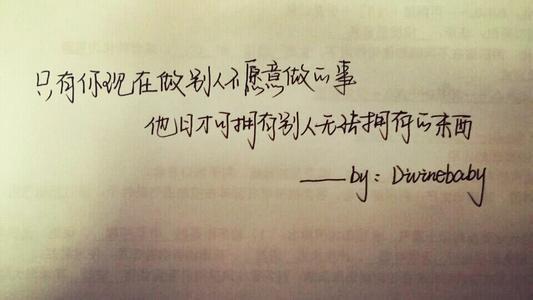 只有你现在做别人不愿意做的事
他日才可拥有别人无法拥有的东西
——by: Divinebaby